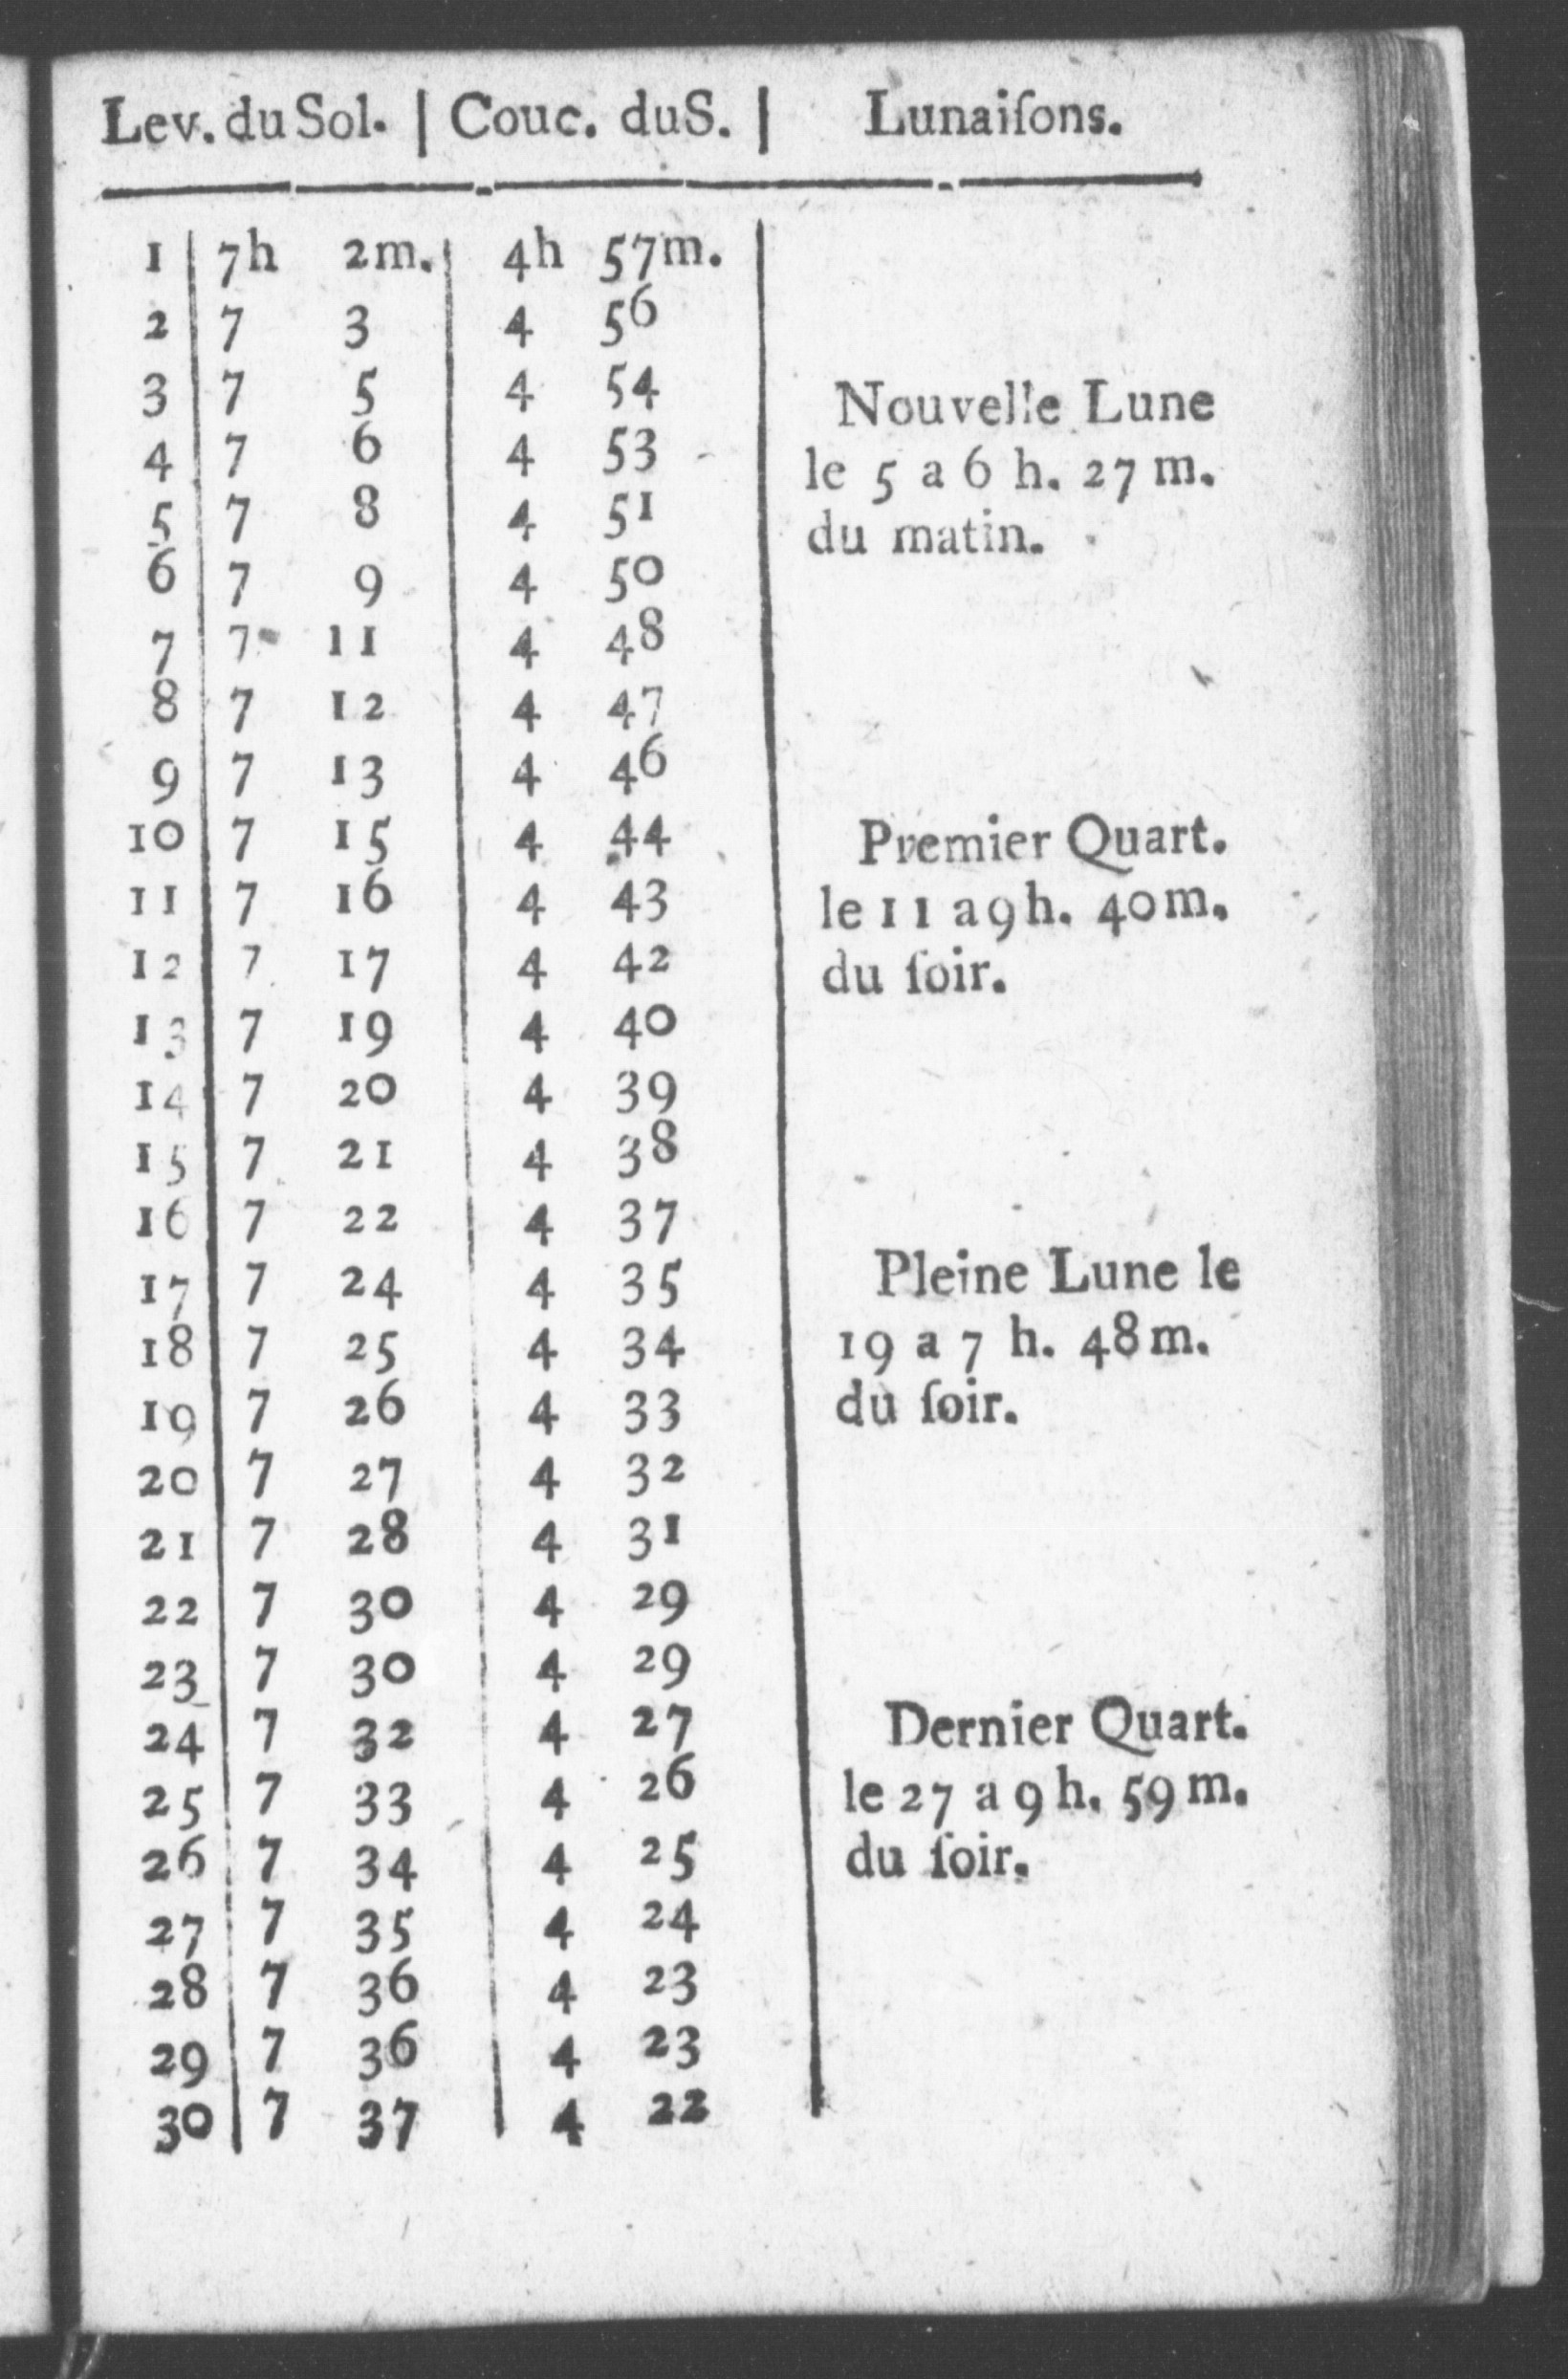 Lev. du Sol. | Couc. duS. | Lunaiſons.
1 7h 2m. 4h 57m.
2 7 3 4 56
3 7 5 4 54 Nouvelle Lune
4 7 6 4 53 le 5 a 6 h. 27 m.
5 7 8 4 51 du matin.
6 7 9 4 50
7 7 11 4 48
8 7 12 4 47
9 7 13 4 46
10 7 15 4 44 Premier Quart.
11 7 16 4 43 le 11 a 9h. 40m.
12 7 17 4 42 du ſoir.
13 7 19 4 40
14 7 20 4 39
15 7 21 4 38
16 7 22 4 37
17 7 24 4 35 Pleine Lune le
18 7 25 4 34 19 a 7 h. 48m.
19 7 26 4 33 du ſoir.
20 7 27 4 32
21 7 28 4 31
22 7 30 4 29
23 7 30 4 29
24 7 32 4 27 Dernier Quart.
25 7 33 4 26 le 27 a 9h. 59m.
26 7 34 4 25 du ſoir.
27 7 35 4 24
28 7 36 4 23
29 7 36 4 23
30 7 37 4 22